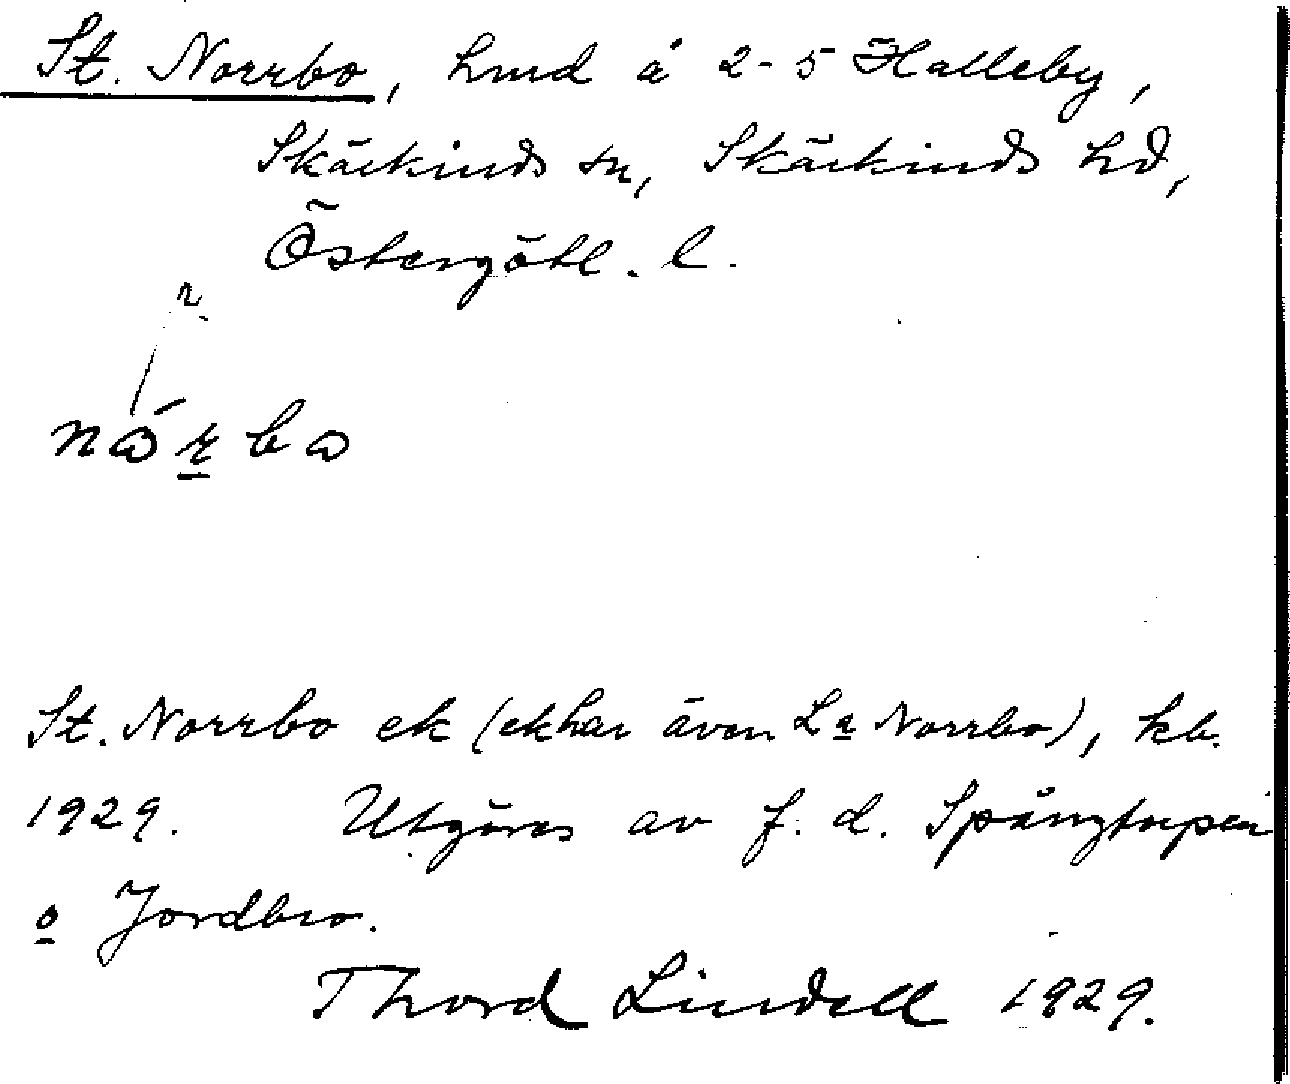 St. Norrbo, hmd å 2-5 Halleby,
Skärkinds sn, Skärkinds hd,
Östergötl. l.
r
nárbo
St. Norrbo ek (ek har även La Norrbo), kb.
1929. Utgöres av f. d. Spångtorpen
o Jordbro.
Thord Lindell 1929.